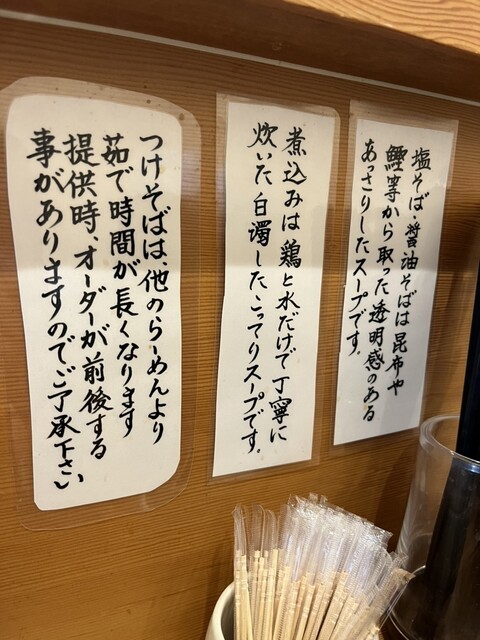 塩そば・醤油そばは昆布や
鰹等から取った透明感のある
あっさりしたスープです。
煮込みは鶏と水だけで丁寧に
炊いた白濁したこってりスープです。
つけそばは、他のらーめんより
茹で時間が長くなります
提供時、オーダーが前後する
事がありますのでご了承下さい